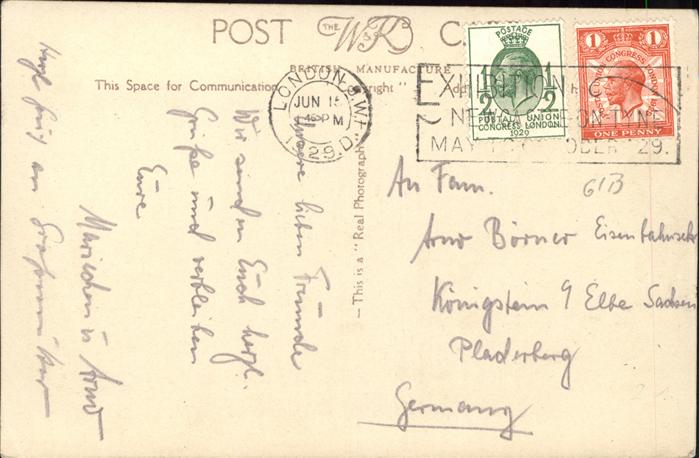 POST CARD
THE W&K
BRITISH MANUFACTURE
This Space for Communication
LONDON. S.W.1.
JUN 15
PM
1929. D
POSTAGE
1/2
POSTAL UNION
CONGRESS LONDON
1929
1
POSTAL UNION CONGRESS LONDON 1929
ONE PENNY
EXHIBITION
NEWCASTLE-ON-TYNE
MAY TO OCTOBER 29.
— This is a "Real Photograph
Unsere lieben Freunde
Wir senden Euch herzl.
Grüße und verbleiben
Eure
Mariechen u Arno
Herzl Gruß an Großmutter
An Fam.
61B
Arno Börner
Königstein 9 Elbe Sachsen
Pladerberg
Germany